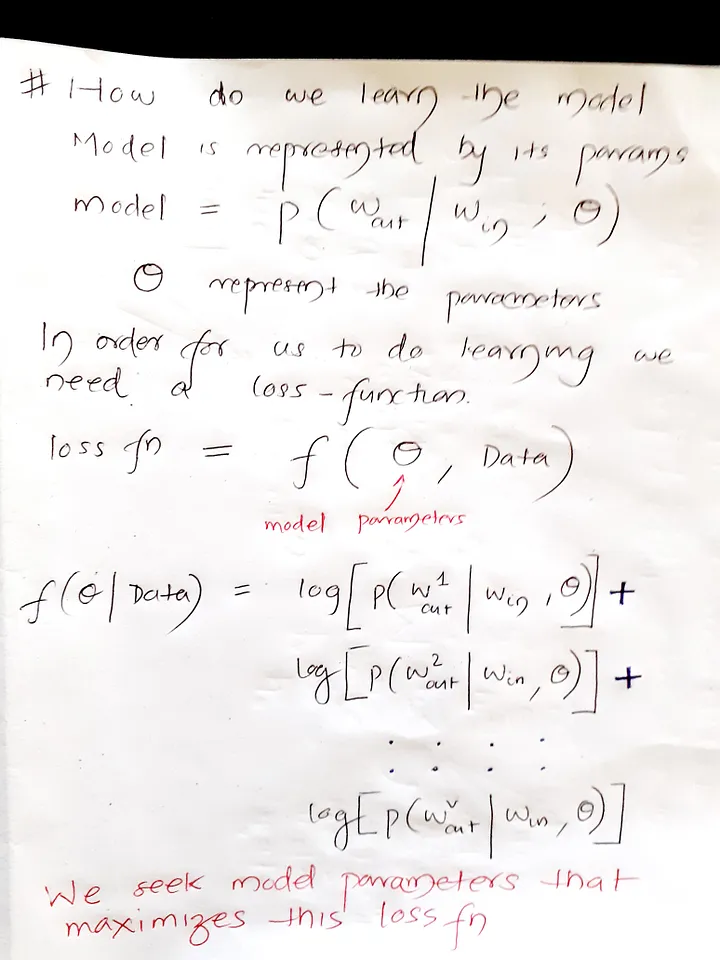 # How do we learn the model
Model is represented by its params
model = p(w_out | w_in ; θ)
θ represent the parameters
In order for us to do learning we
need a loss-function.
loss fn = f(θ, Data)
model parameters
f(θ | Data) = log[p(w^1_out | w_in, θ)] +
log[p(w^2_out | w_in, θ)] +
: : : :
log[p(w^v_out | w_in, θ)]
We seek model parameters that
maximizes this loss fn